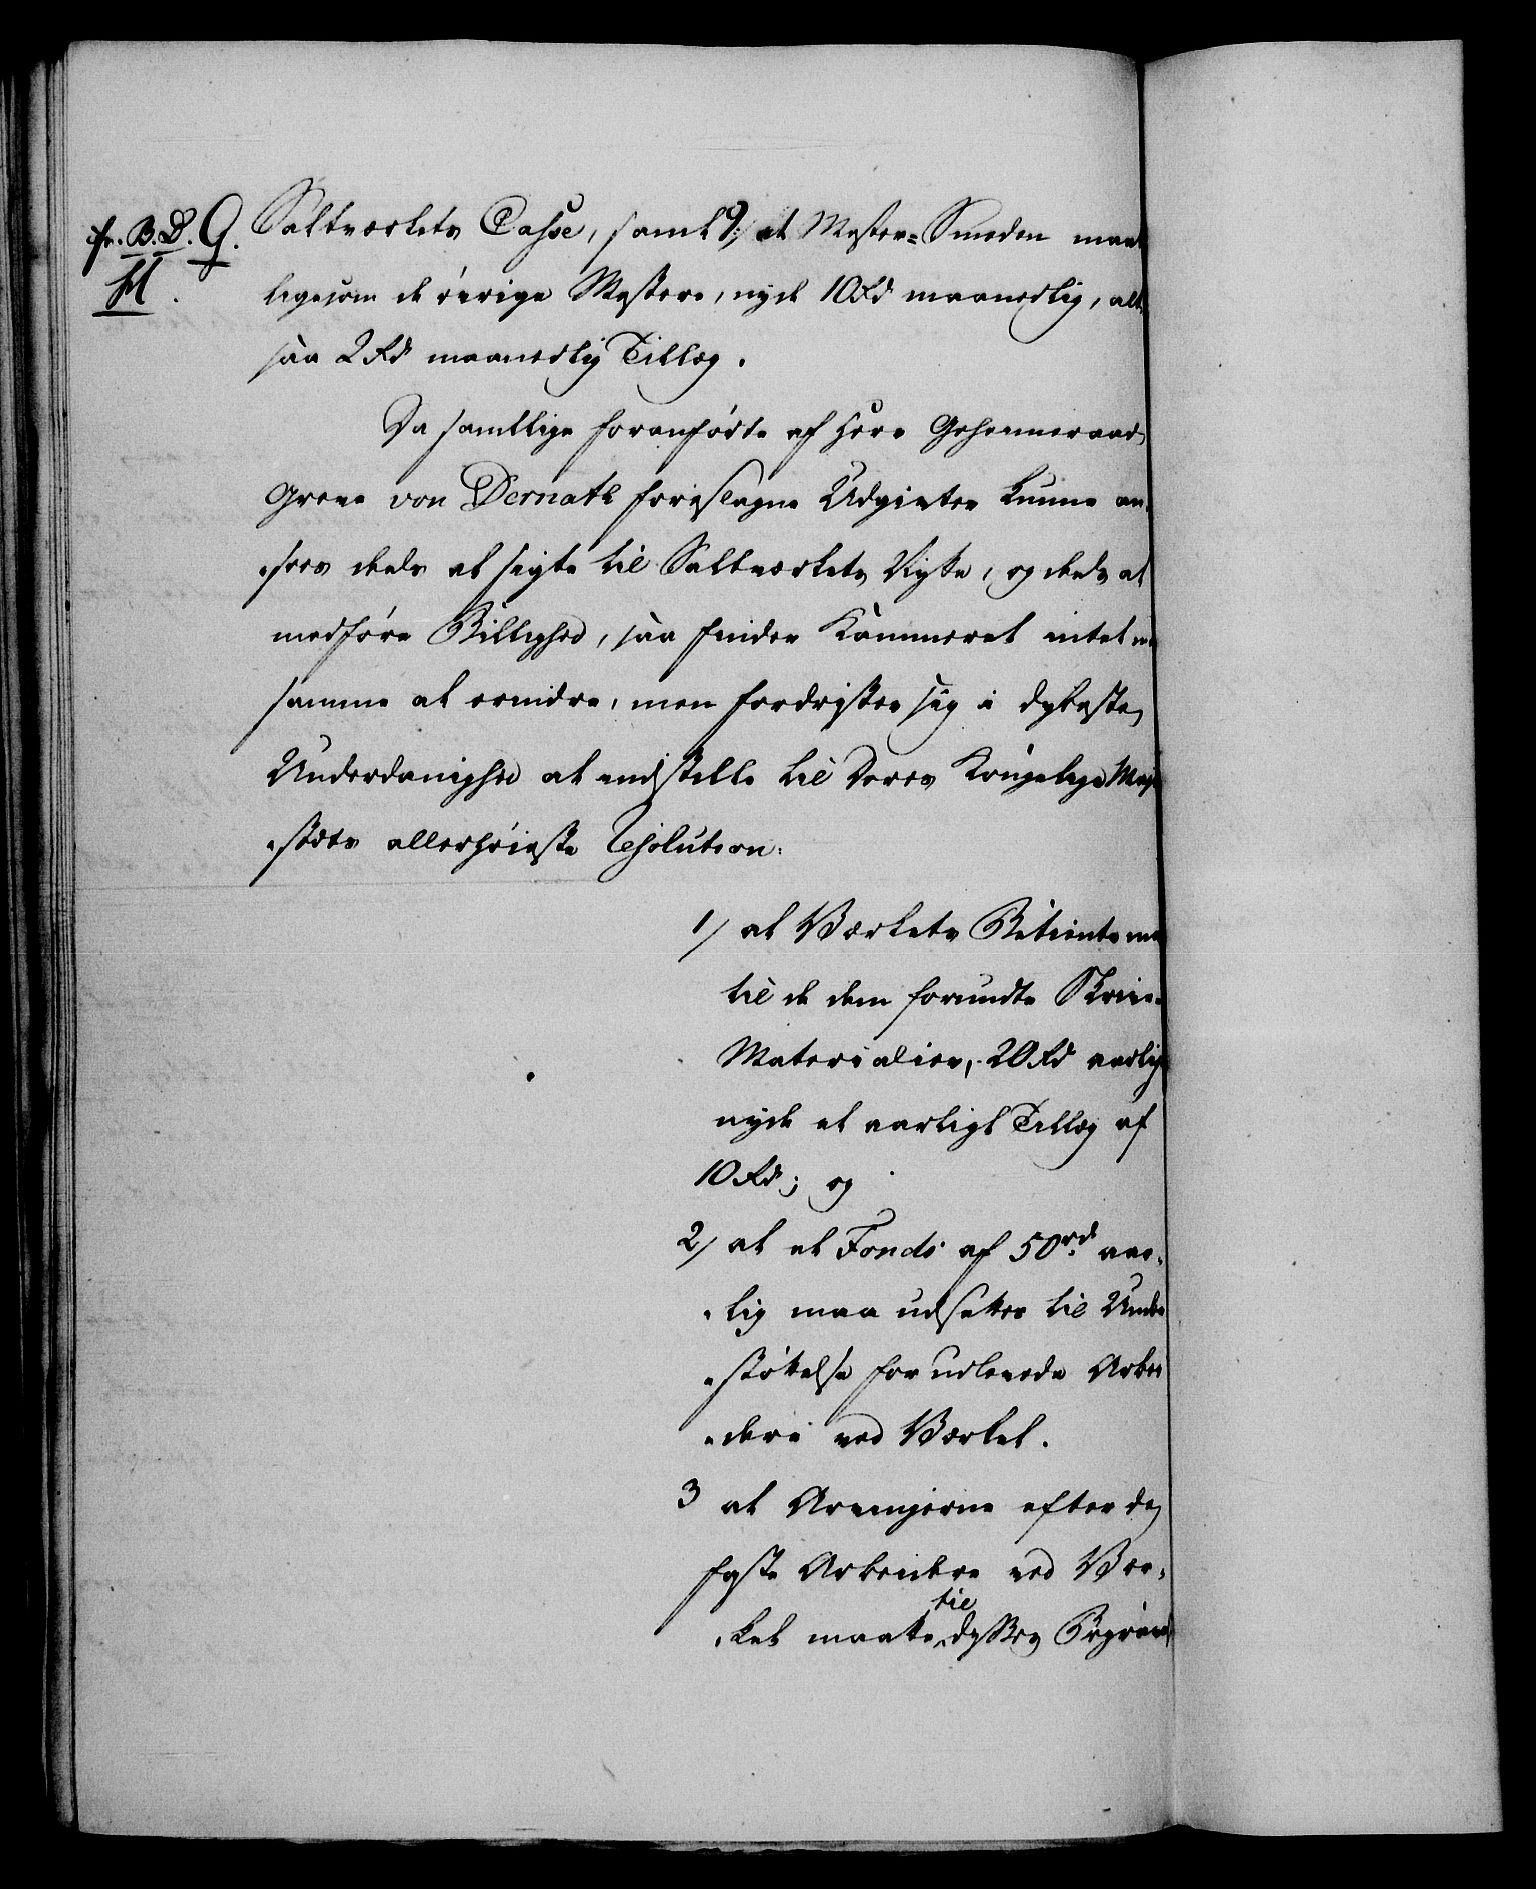 fr. B. D. G.
H.
Saltværkets Casse, samt 9/ at Mester-Smeden maa
ligesom de øvrige Mestere, nyde 10 Rd maanedlig, alt-
saa 2 Rd maanedlig Tillæg.
Da samtlige foranførte af Herr Geheimeraad
Greve von Dernath foreslagne Udgivter kunne an-
sees deels at sigte til Saltværkets Nytte, og deels at
medføre Billighed, saa finder Kammeret intet ved
samme at erindre, men fordrister sig i dybeste
Underdanighed at indstille til Deres Kongelige Maje-
stæts allerhøieste Resolution:
1/ at Værkets Betiente maa
til de dem forundte Skrive-
Materialier, 20 Rd aarlig
nyde et aarligt Tillæg af
10 Rd; og
2/ at et Fonds af 50 rd. aar-
lig maa udsættes til Under-
støttelse for udlevede Arbei-
dere ved Værket.
3 at Arvingerne efter de
faste Arbeidere ved Vær-
ket maatte til disses Begravel